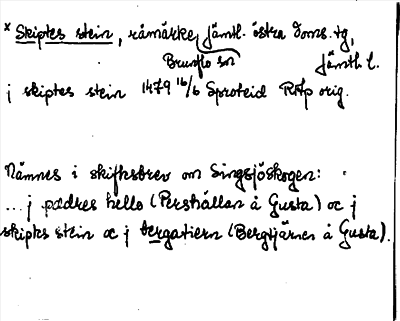 × Skiptes stein, råmärke, Jämtl. östra doms. tg,
Brunflo sn Jämtl. l.
j skiptes stein 1479 16/6 Sproteid RAp orig.
Nämnes i skiftesbrev om Singsjöskogen:
... j pædres hello (Pershällan å Gusta) oc j
skiptes stein oc j bergatiern (Bergtjärnen å Gusta).